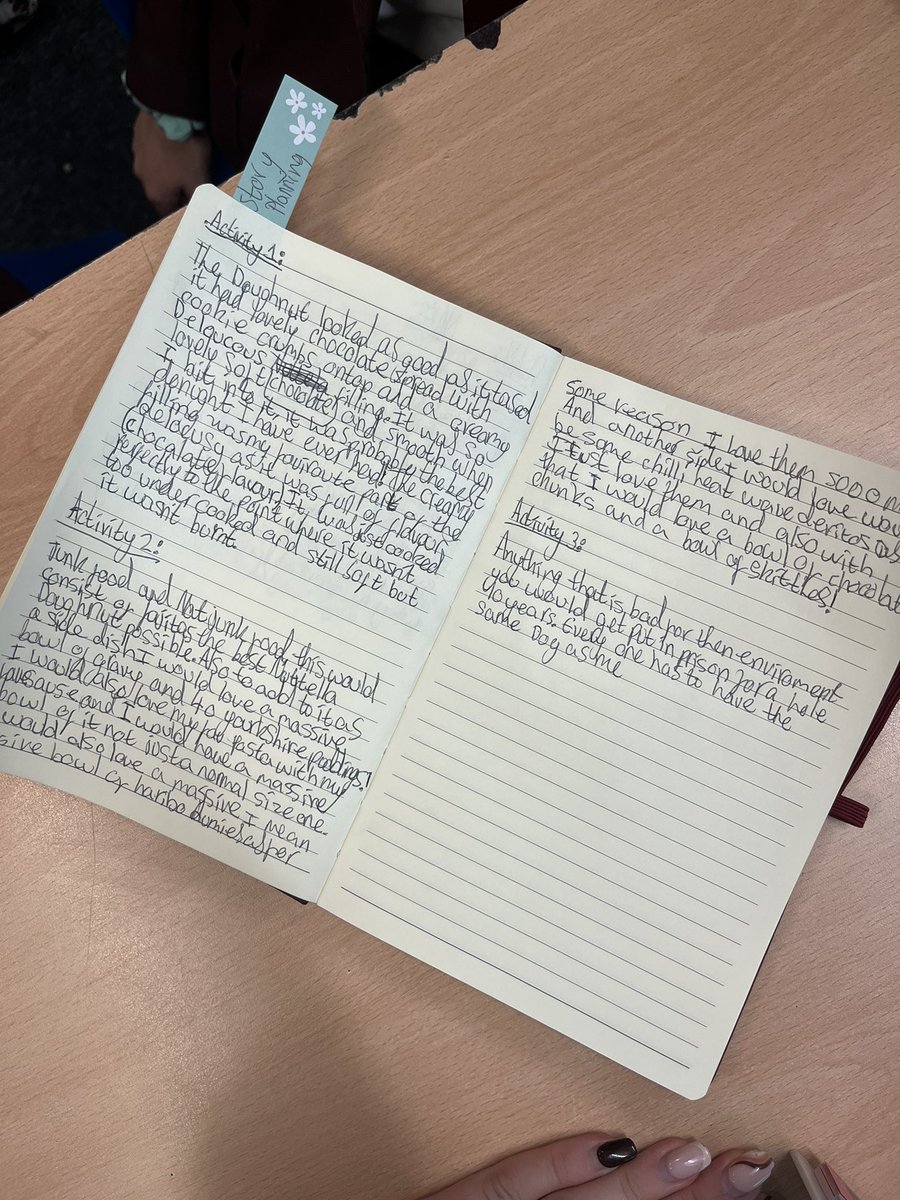 Story
Planning
Activity 1:
The Doughnut looked as good as it tased
it had lovely chocolate spread with
cookie crumbs ontop and a creamy
Deleucous filling. It was so
lovely soft chocolatey and smooth when
I bit into it it was probably the best
donught I have ever had the creamy
filling wasmy faviroute part of the
deladusy as it was full of flavour
(chocolate flavour). It was just cooked
perfectly to the point where it wasnt
to under cooked and still soft but
it wasnt burnt.
Activity 2:
Junk food and Not junk food, this would
consist of favritas the best Nuttella
Doughnut possible. Also to add to it as
a side dish I would love a massive
bowl of gravy and to yourkshire puddings!
I would also love my fav Pasta with my
sausause and I would have a massive
bowl of it not just a normal size one.
would also love a massive I mean
sive bowl of haribo as for
some reason I love them sooo m
And another side I would love wou
be some chilli heat wave deritos
I just love them and also with
that I would love a bowl of chocolat
chunks and a bowl of skittles!
Activity 3:
Anything that is bad for then enviroment
you would get put in prison for a hole
40 years. Every one has to have the
same Dog as me